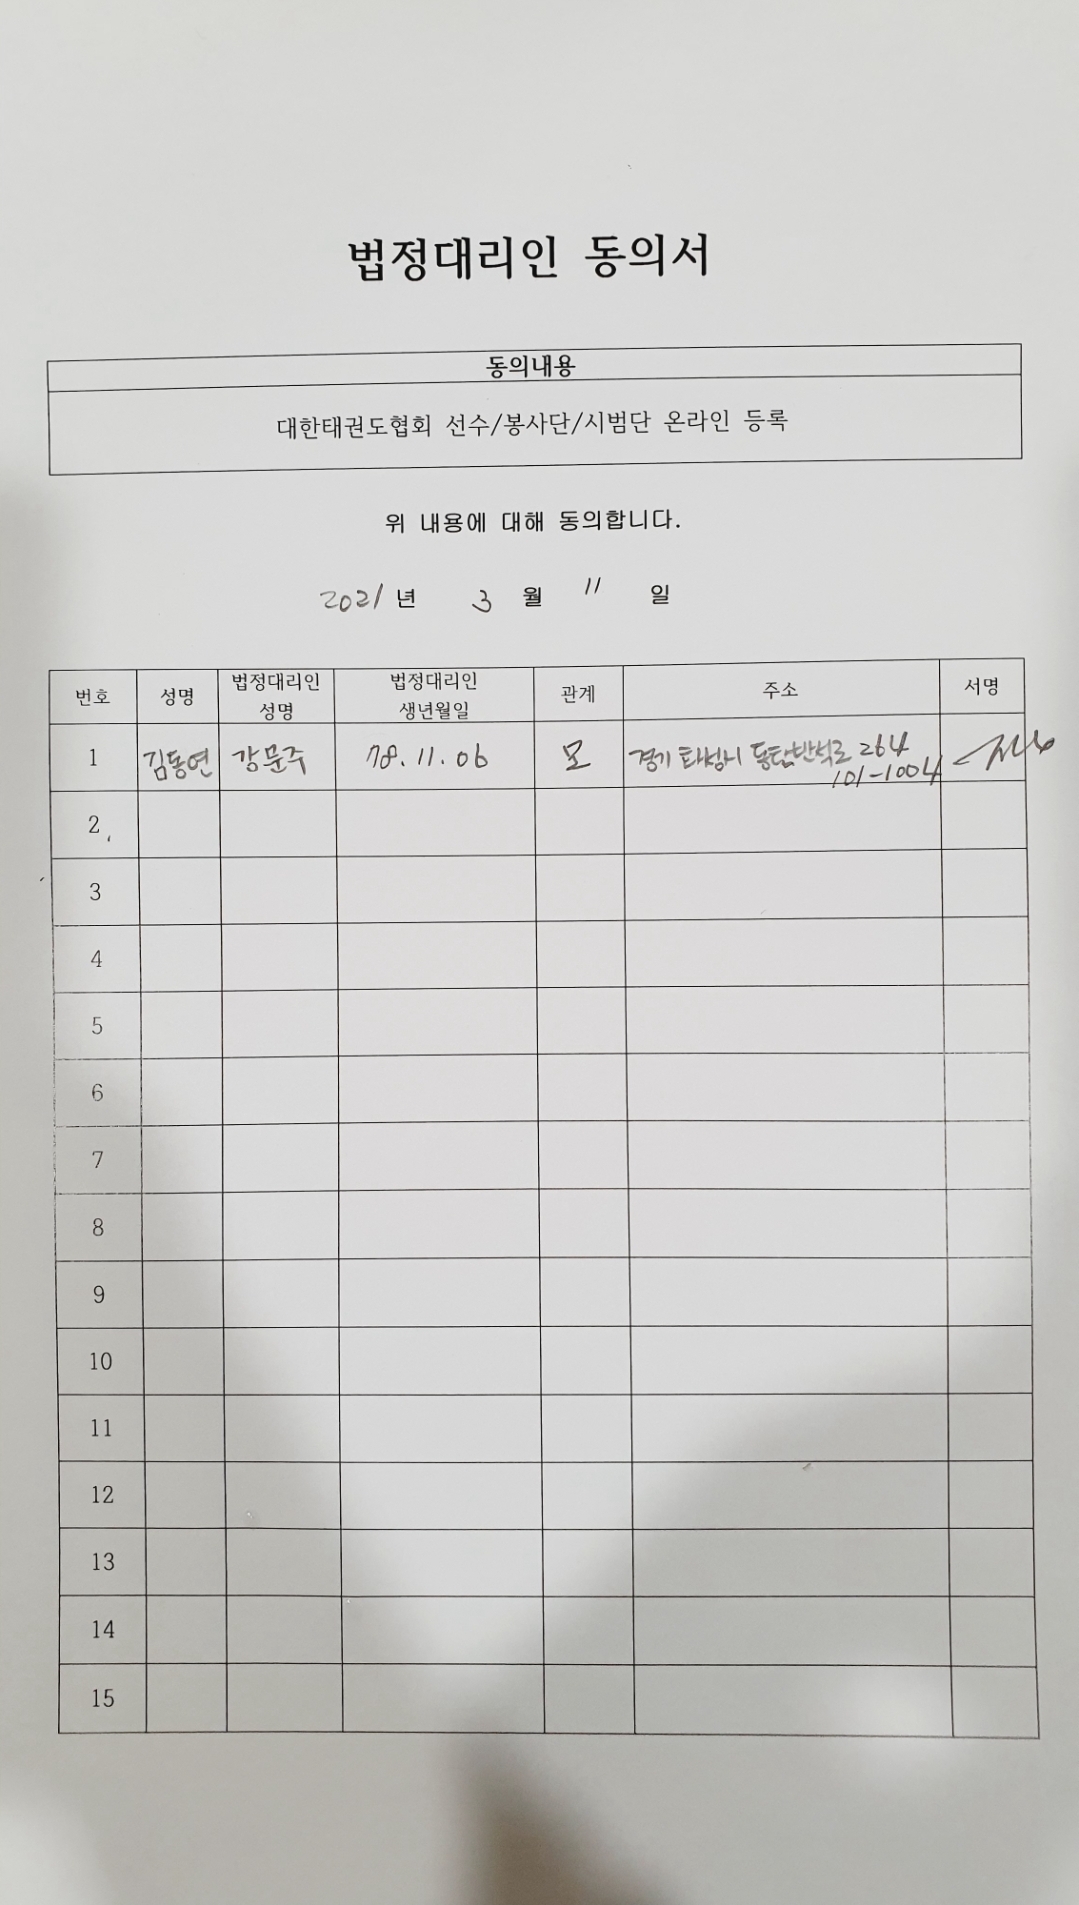 법정대리인 동의서
동의내용
대한태권도협회 선수/봉사단/시범단 온라인 등록
위 내용에 대해 동의합니다.
2021 년 3 월 11 일
번호 성명 법정대리인 성명 법정대리인 생년월일 관계 주소 서명
1 김동연 강문주 78.11.06 모 경기 화성시 동탄반석로 264
101-1004
2
3
4
5
6
7
8
9
10
11
12
13
14
15